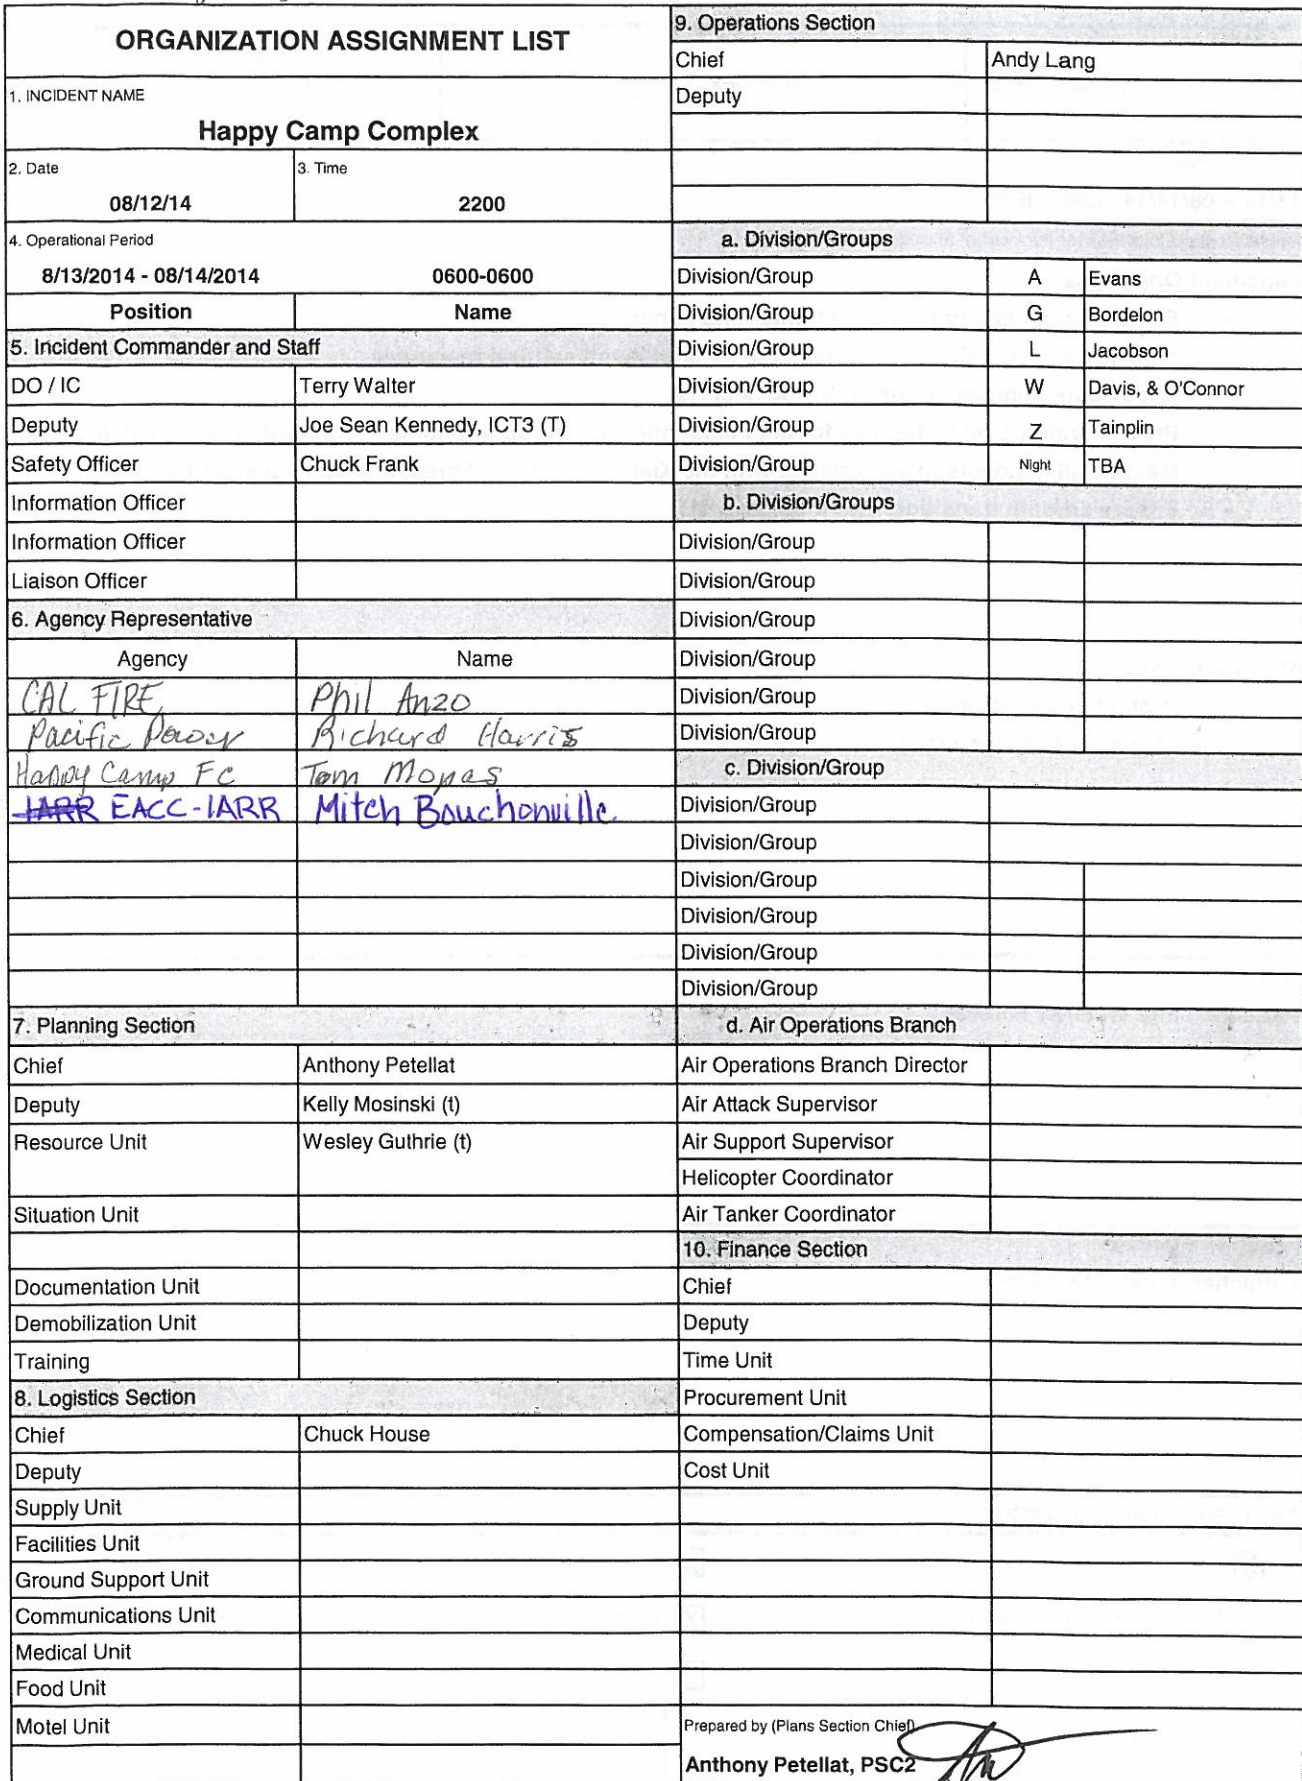 ORGANIZATION ASSIGNMENT LIST
1. INCIDENT NAME
Happy Camp Complex
2. Date
3. Time
08/12/14
2200
4. Operational Period
8/13/2014 - 08/14/2014
0600-0600
Position
Name
5. Incident Commander and Staff
DO / IC
Terry Walter
Deputy
Joe Sean Kennedy, ICT3 (T)
Safety Officer
Chuck Frank
Information Officer
Information Officer
Liaison Officer
6. Agency Representative
Agency
Name
CAL FIRE
Phil Anzo
Pacific Power
Richard Harris
Happy Camp FC
Tom Mopas
IARR EACC-IARR
Mitch Bouchonville
7. Planning Section
Chief
Anthony Petellat
Deputy
Kelly Mosinski (t)
Resource Unit
Wesley Guthrie (t)
Situation Unit
Documentation Unit
Demobilization Unit
Training
8. Logistics Section
Chief
Chuck House
Deputy
Supply Unit
Facilities Unit
Ground Support Unit
Communications Unit
Medical Unit
Food Unit
Motel Unit
9. Operations Section
Chief
Andy Lang
Deputy
a. Division/Groups
Division/Group
A
Evans
Division/Group
G
Bordelon
Division/Group
L
Jacobson
Division/Group
W
Davis, & O'Connor
Division/Group
Z
Tainplin
Division/Group
Night
TBA
b. Division/Groups
Division/Group
Division/Group
Division/Group
Division/Group
Division/Group
Division/Group
c. Division/Group
Division/Group
Division/Group
Division/Group
Division/Group
Division/Group
Division/Group
d. Air Operations Branch
Air Operations Branch Director
Air Attack Supervisor
Air Support Supervisor
Helicopter Coordinator
Air Tanker Coordinator
10. Finance Section
Chief
Deputy
Time Unit
Procurement Unit
Compensation/Claims Unit
Cost Unit
Prepared by (Plans Section Chief)
Anthony Petellat, PSC2